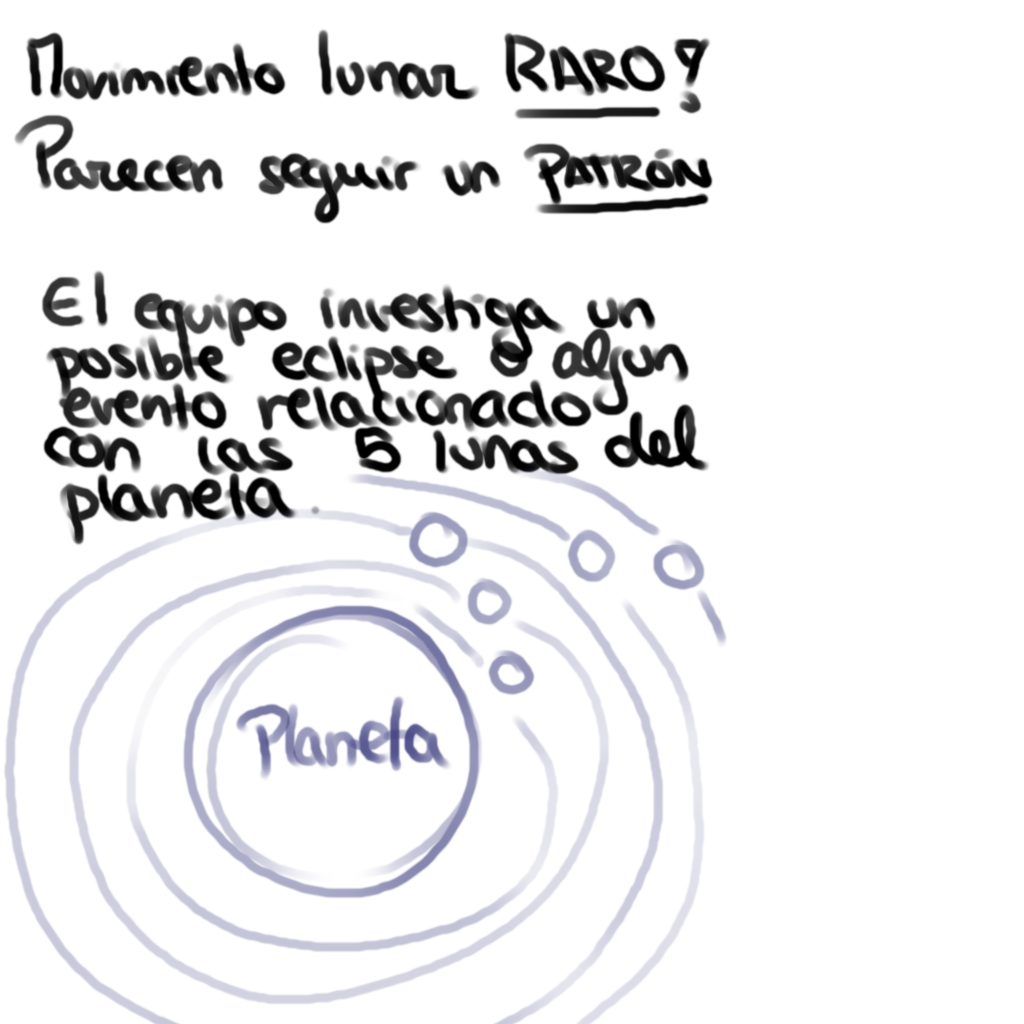 Movimiento lunar RARO?
Parecen seguir un PATRÓN
El equipo investiga un
posible eclipse o algun
evento relacionado
con las 5 lunas del
planeta.
Planeta